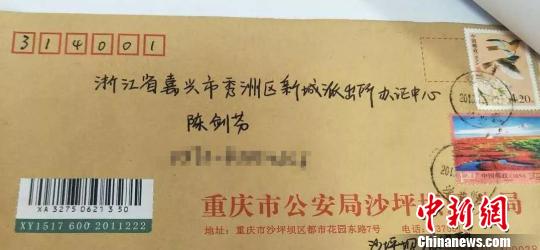 314001
浙江省嘉兴市秀洲区新城派出所办证中心
陈剑芬
中国邮政
4.20
中国邮政 CHINA
XA 3275 0621 3 50
XY1517 600 2011222
重庆市公安局沙坪坝
局
地址：重庆市沙坪坝区都市花园东路7号
沙坪坝
中新网
www.chinanews.com